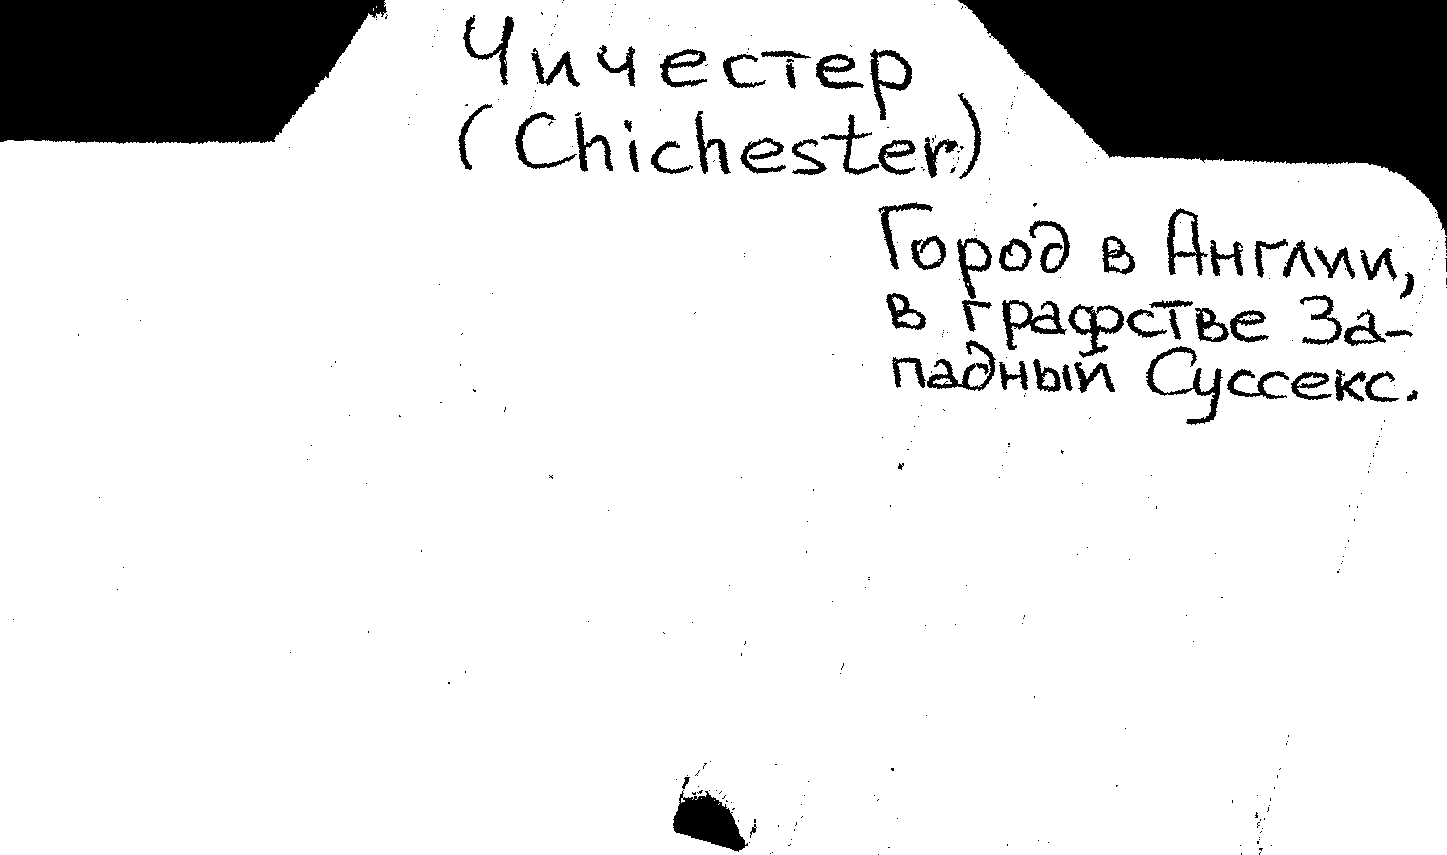 Чичестер
(Chichester)
Город в Англии,
в графстве За-
падный Суссекс.